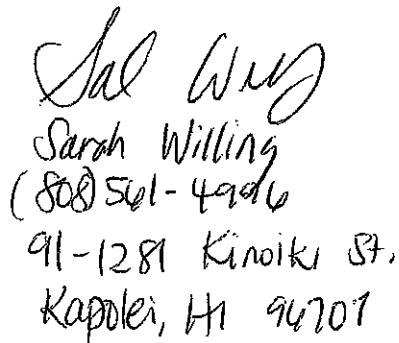 Sarah Willing
(808) 561-4996
91-1281 Kinoiki St.
Kapolei, HI 96707